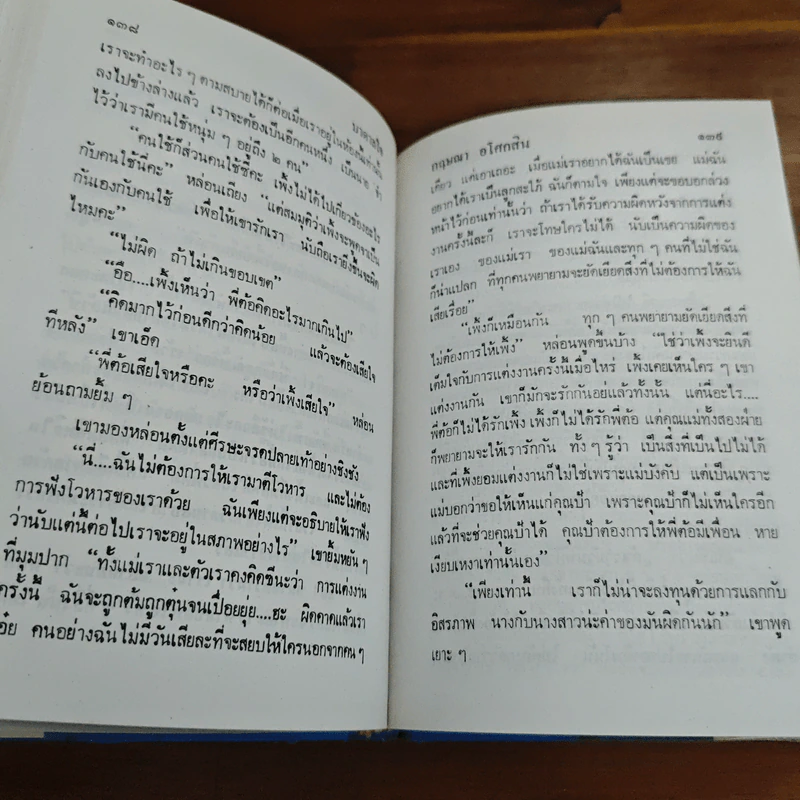 ๑๓๘
เราจะทำอะไร ๆ ตามสบายได้ก็ต่อเมื่อเราอยู่ในห้องนี้เท่านั้น
ลงไปข้างล่างแล้ว เราจะต้องเป็นอีกคนหนึ่ง เป็นนาย
ไว้ว่าเรามีคนใช้หนุ่ม ๆ อยู่ถึง ๒ คน”
“คนใช้ก็ส่วนคนใช้ซี้คะ เพ้งไม่ได้ไปเกี่ยวข้องอะไร
กับคนใช้นี่คะ” หล่อนเถียง “แต่สมมุติว่าเพ้งจะพูดจาเป็น
กันเองกับคนใช้ เพื่อให้เขารักเรา นับถือเราอีกชั้นจะผิด
ไหมคะ”
“ไม่ผิด ถ้าไม่เกินขอบเขต”
“อือ....เพ้งเห็นว่า พี่ต้อคิดอะไรมากเกินไป”
“คิดมากไว้ก่อนดีกว่าคิดน้อย แล้วจะต้องเสียใจ
ทีหลัง” เขาเอ็ด
“พี่ต้อเสียใจหรือคะ หรือว่าเพ้งเสียใจ” หล่อน
ย้อนถามยิ้ม ๆ
เขามองหล่อนตั้งแต่ศีรษะจรดปลายเท้าอย่างชิงชัง
“นี่....ฉันไม่ต้องการให้เรามาตีโวหาร และไม่ต้อง
การฟังโวหารของเราด้วย ฉันเพียงแต่จะอธิบายให้เราฟัง
ว่านับแต่นี้ต่อไปเราจะอยู่ในสภาพอย่างไร” เขายิ้มหยัน ๆ
ที่มุมปาก “ทั้งแม่เราและตัวเราคงคิดซีนะว่า การแต่งงาน
ครั้งนี้ ฉันจะถูกต้มถูกตุ๋นจนเปื่อยยุ่ย....ฮะ ผิดคาดแล้วเรา
เอ๋ย คนอย่างฉันไม่มีวันเสียละที่จะสยบให้ใครนอกจากคน ๆ
กฤษณา อโศกสิน ๑๓๙
เดียว แต่เอาเถอะ เมื่อแม่เราอยากได้ฉันเป็นเขย แม่ฉัน
อยากได้เราเป็นลูกสะใภ้ ฉันก็ตามใจ เพียงแต่จะขอบอกล่วง
หน้าไว้ก่อนเท่านั้นว่า ถ้าเราได้รับความผิดหวังจากการแต่ง
งานครั้งนี้ละก็ เราจะโทษใครไม่ได้ นับเป็นความผิดของ
เราเอง ของแม่เรา ของแม่ฉันและทุก ๆ คนที่ไม่ใช่ฉัน
ก็น่าแปลก ที่ทุกคนพยายามจะยัดเยียดสิ่งที่ไม่ต้องการให้ฉัน
เสียเรื่อย”
“เพ้งก็เหมือนกัน ทุก ๆ คนพยายามยัดเยียดสิ่งที่
ไม่ต้องการให้เพ้ง” หล่อนพูดขึ้นบ้าง “ใช่ว่าเพ้งจะยินดี
เต็มใจกับการแต่งงานครั้งนี้เมื่อไหร่ เพ้งเคยเห็นใคร ๆ เขา
แต่งงานกัน เขาก็มักจะรักกันอยู่แล้วทั้งนั้น แต่นี่อะไร....
พี่ต้อก็ไม่ได้รักเพ้ง เพ้งก็ไม่ได้รักพี่ต้อ แต่คุณแม่ทั้งสองฝ่าย
ก็พยายามจะให้เรารักกัน ทั้ง ๆ รู้ว่า เป็นสิ่งที่เป็นไปไม่ได้
และที่เพ้งยอมแต่งงานก็ไม่ใช่เพราะแม่บังคับ แต่เป็นเพราะ
แม่บอกว่าขอให้เห็นแก่คุณป้า เพราะคุณป้าก็ไม่เห็นใครอีก
แล้วที่จะช่วยคุณป้าได้ คุณป้าต้องการให้พี่ต้อมีเพื่อน หาย
เงียบเหงาเท่านั้นเอง”
“เพียงเท่านี้ เราก็ไม่น่าจะลงทุนด้วยการแลกกับ
อิสรภาพ นางกับนางสาวน่ะค่าของมันผิดกันนัก” เขาพูด
เยาะ ๆ